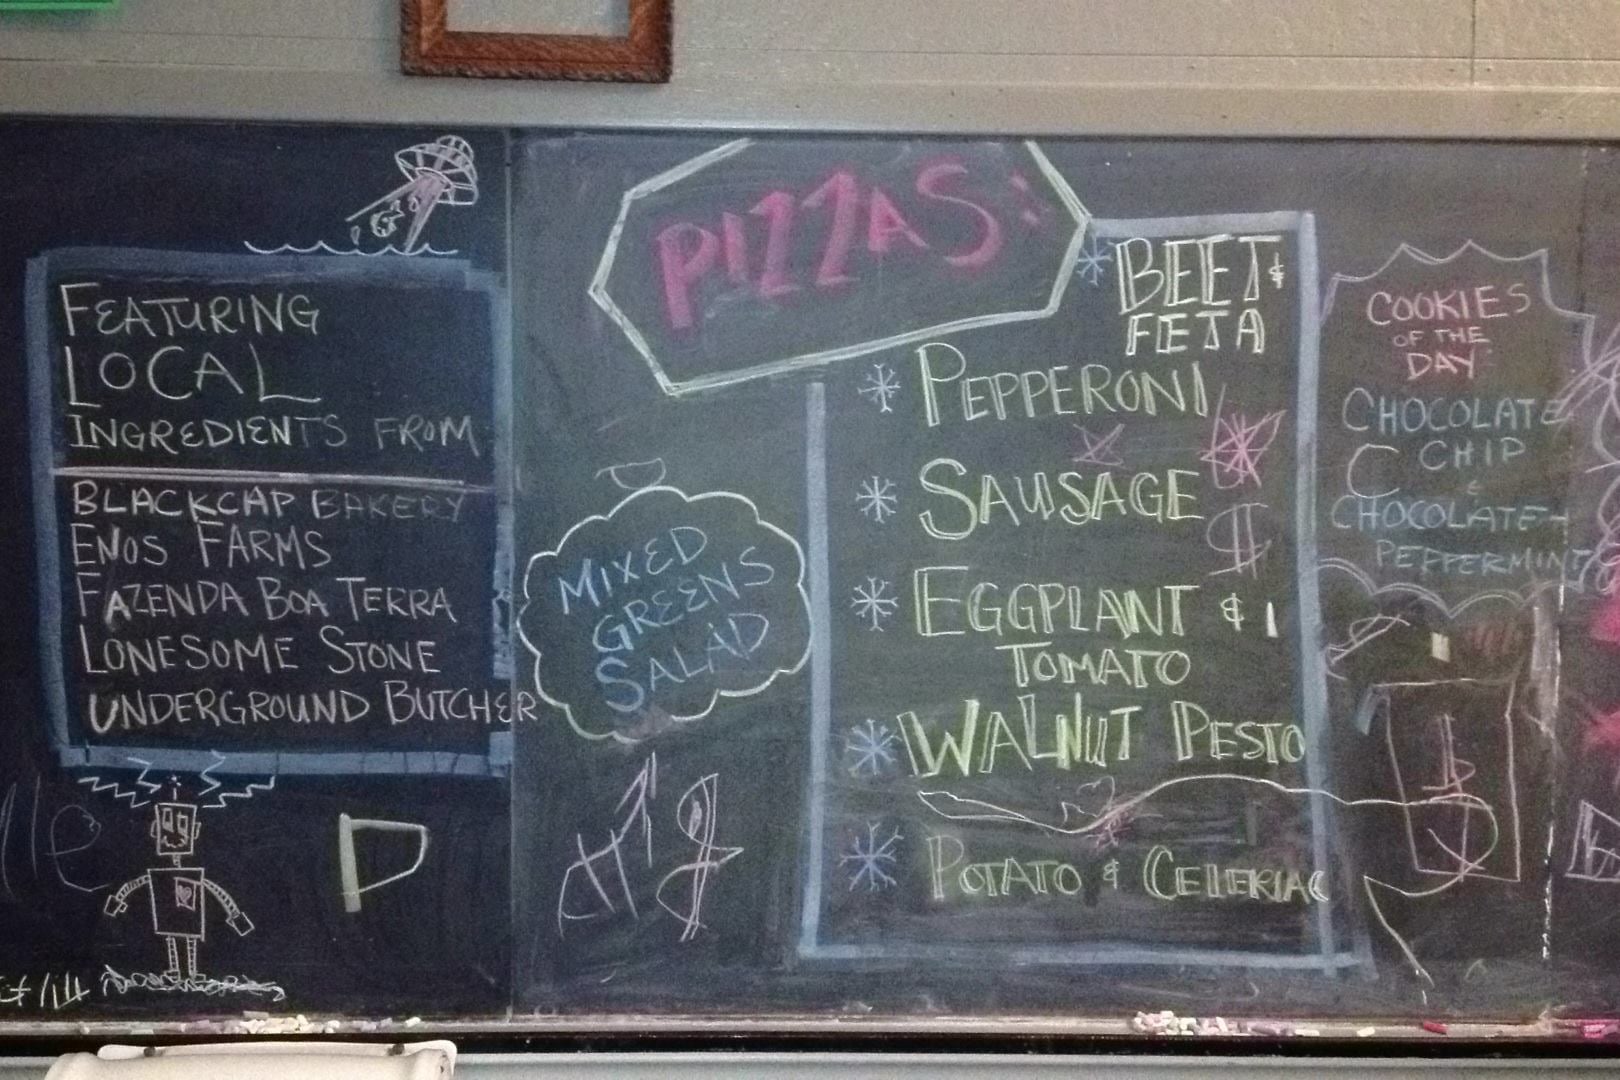 FEATURING
LOCAL
INGREDIENTS FROM
BLACKCAP BAKERY
ENOS FARMS
FAZENDA BOA TERRA
LONESOME STONE
UNDERGROUND BUTCHER
P
MIXED
GREENS
SALAD
PIZZAS:
BEET &
FETA
PEPPERONI
SAUSAGE
$
EGGPLANT &
TOMATO
WALNUT PESTO
POTATO & CELERIAC
COOKIES
OF THE
DAY
CHOCOLATE
CHIP
C
&
CHOCOLATE-
PEPPERMINT